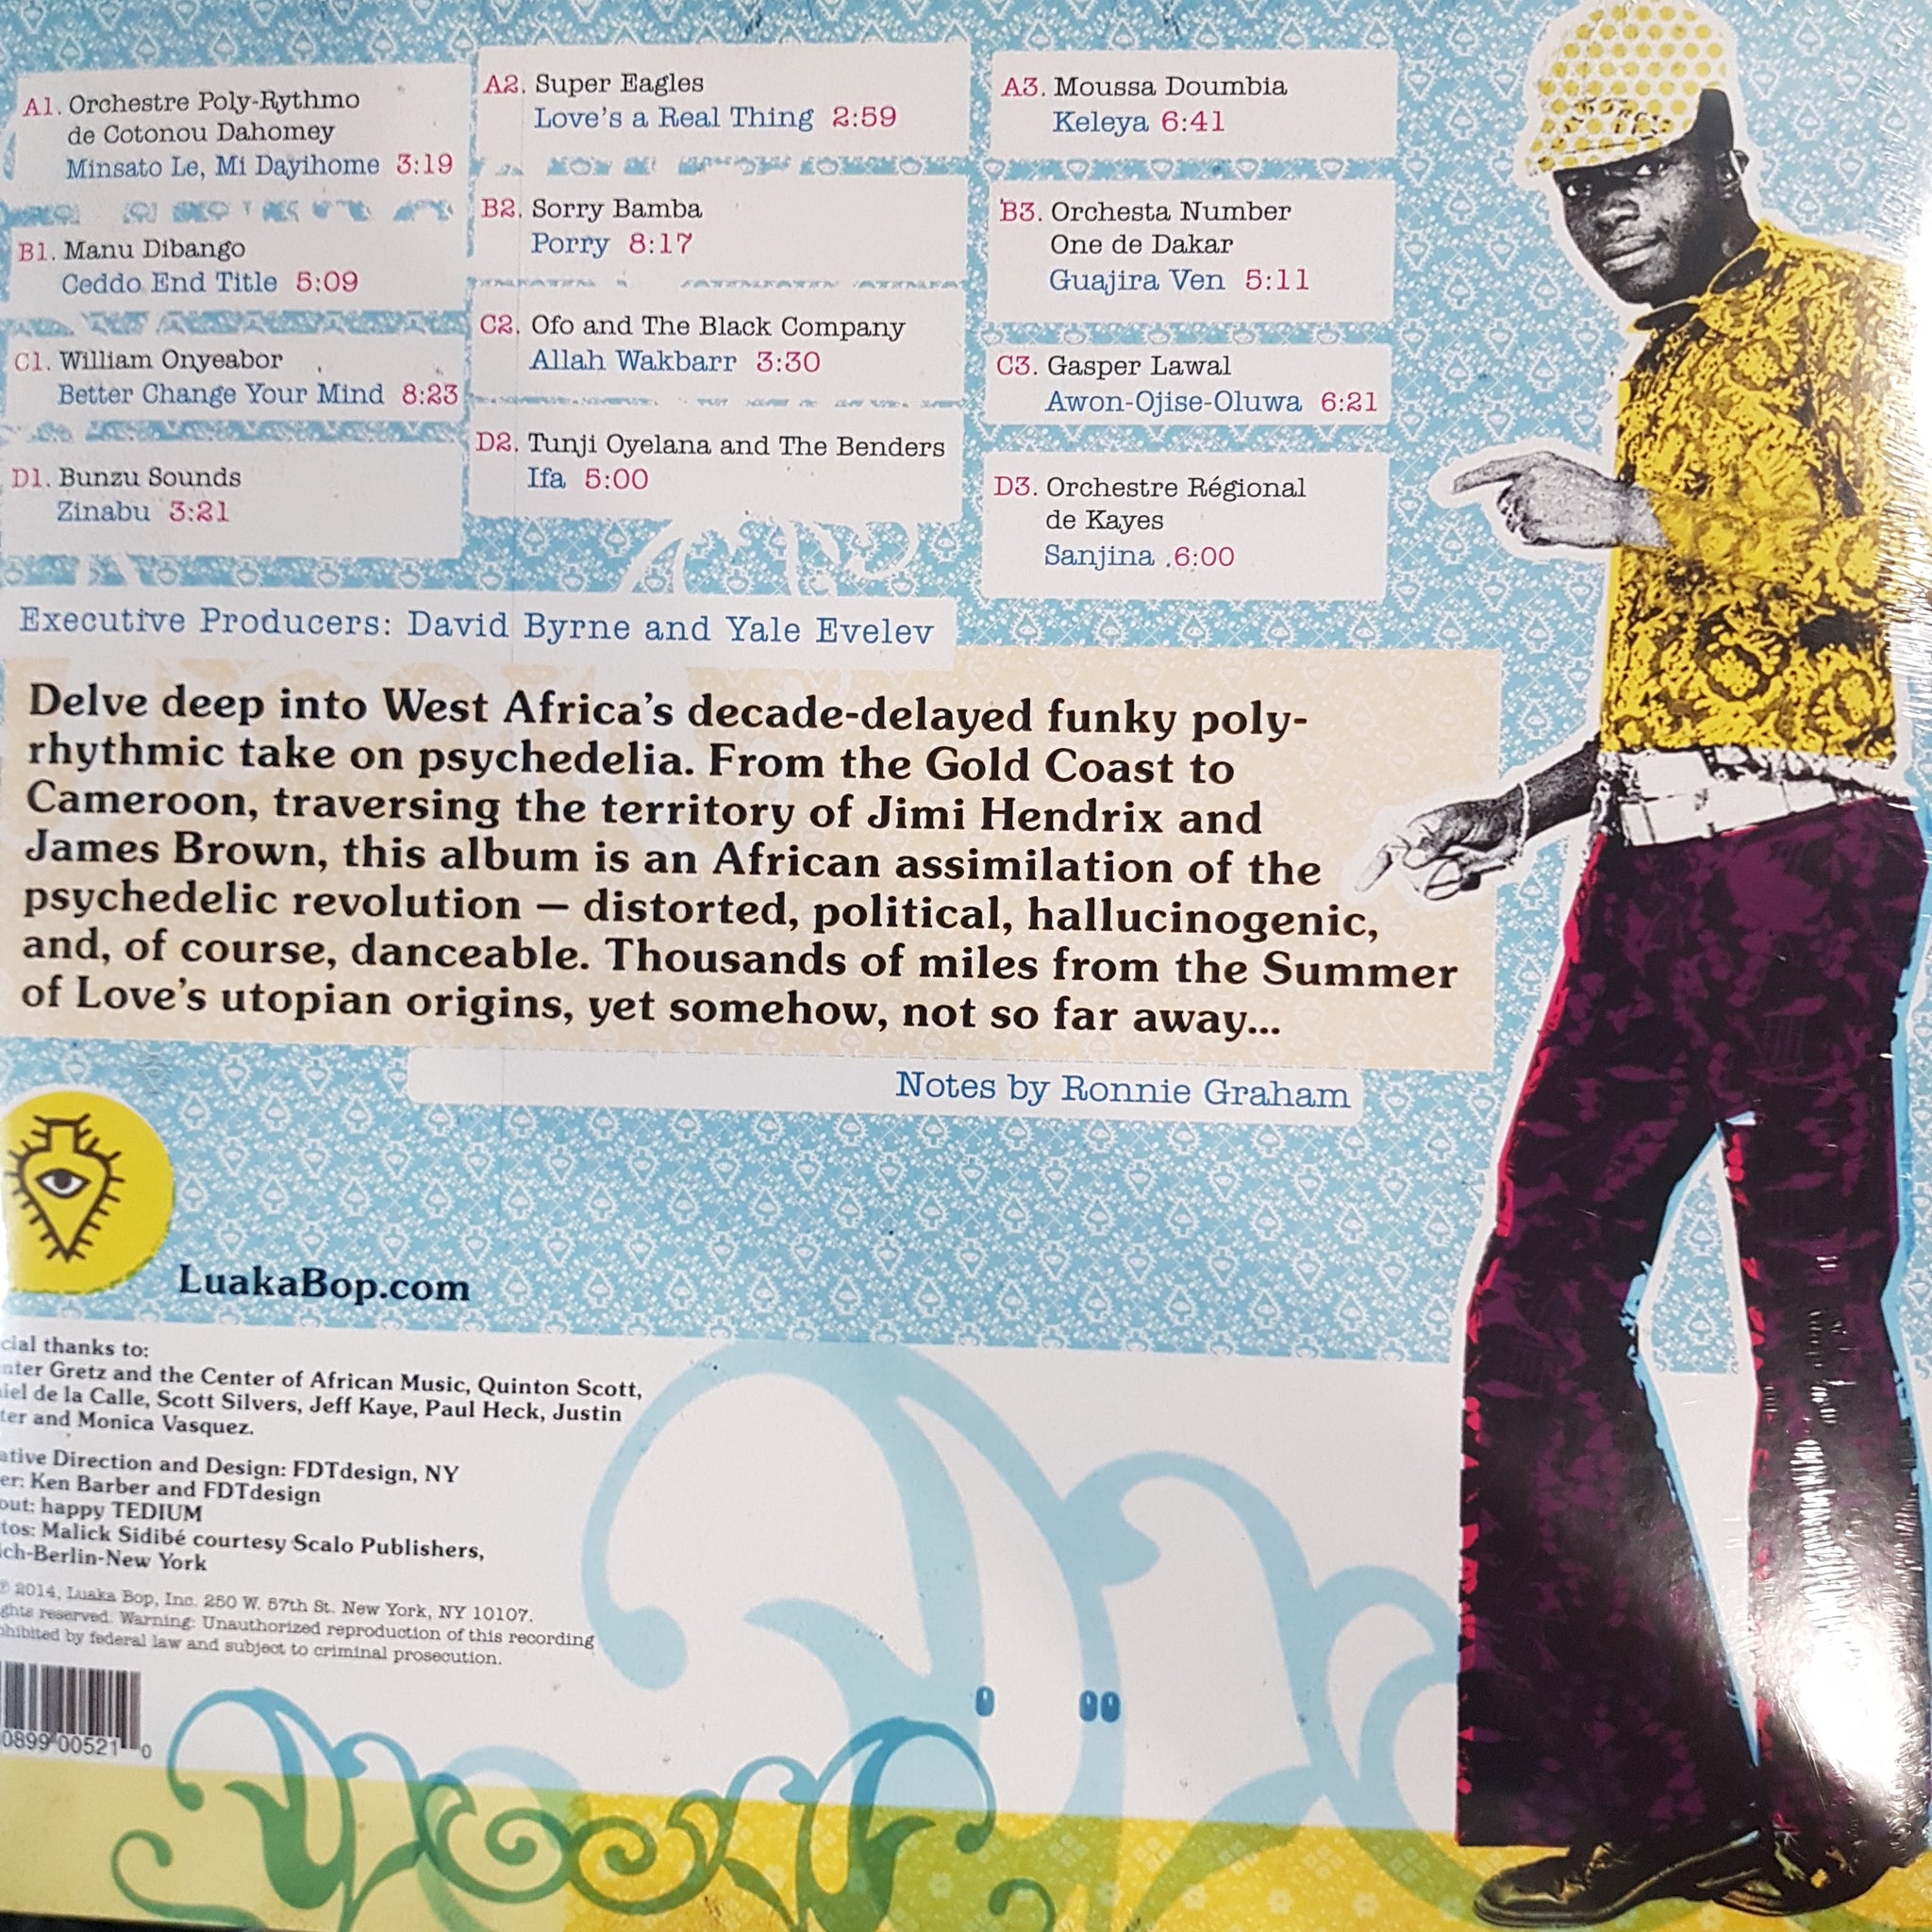 A1. Orchestre Poly-Rythmo
de Cotonou Dahomey
Minsato Le, Mi Dayihome 3:19
A2. Super Eagles
Love's a Real Thing 2:59
A3. Moussa Doumbia
Keleya 6:41
B1. Manu Dibango
Ceddo End Title 5:09
B2. Sorry Bamba
Porry 8:17
B3. Orchesta Number
One de Dakar
Guajira Ven 5:11
C1. William Onyeabor
Better Change Your Mind 8:23
C2. Ofo and The Black Company
Allah Wakbarr 3:30
C3. Gasper Lawal
Awon-Ojise-Oluwa 6:21
D1. Bunzu Sounds
Zinabu 3:21
D2. Tunji Oyelana and The Benders
Ifa 5:00
D3. Orchestre Régional
de Kayes
Sanjina 6:00
Executive Producers: David Byrne and Yale Evelev
Delve deep into West Africa's decade-delayed funky poly-
rhythmic take on psychedelia. From the Gold Coast to
Cameroon, traversing the territory of Jimi Hendrix and
James Brown, this album is an African assimilation of the
psychedelic revolution — distorted, political, hallucinogenic,
and, of course, danceable. Thousands of miles from the Summer
of Love's utopian origins, yet somehow, not so far away...
Notes by Ronnie Graham
LuakaBop.com
cial thanks to:
nter Gretz and the Center of African Music, Quinton Scott,
iel de la Calle, Scott Silvers, Jeff Kaye, Paul Heck, Justin
ter and Monica Vasquez.
ative Direction and Design: FDTdesign, NY
er: Ken Barber and FDTdesign
out: happy TEDIUM
tos: Malick Sidibé courtesy Scalo Publishers,
ich-Berlin-New York
℗ 2014, Luaka Bop, Inc. 250 W. 57th St. New York, NY 10107.
ghts reserved. Warning: Unauthorized reproduction of this recording
ohibited by federal law and subject to criminal prosecution.
0899 00521 0